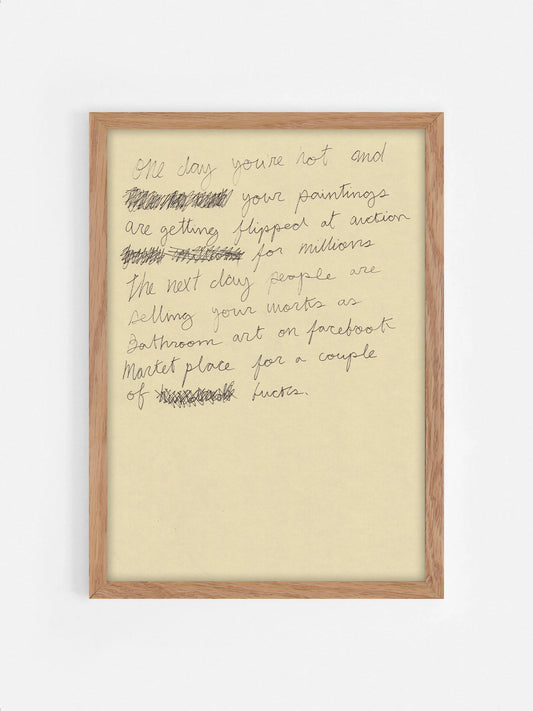 One day you're hot and
your paintings
are getting flipped at auction
for millions
The next day people are
selling your works as
Bathroom art on facebook
Market place for a couple
of bucks.